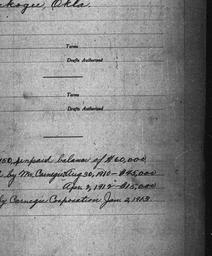 skogee, Okla.
Terms
Drafts Authorized
Terms
Drafts Authorized
150, unpaid balance of $60,000
by Mr. Carnegie Aug 30, 1910 - $45,000
Apr. 2, 1912 - $15,000
by Carnegie Corporation Jan 2, 1913